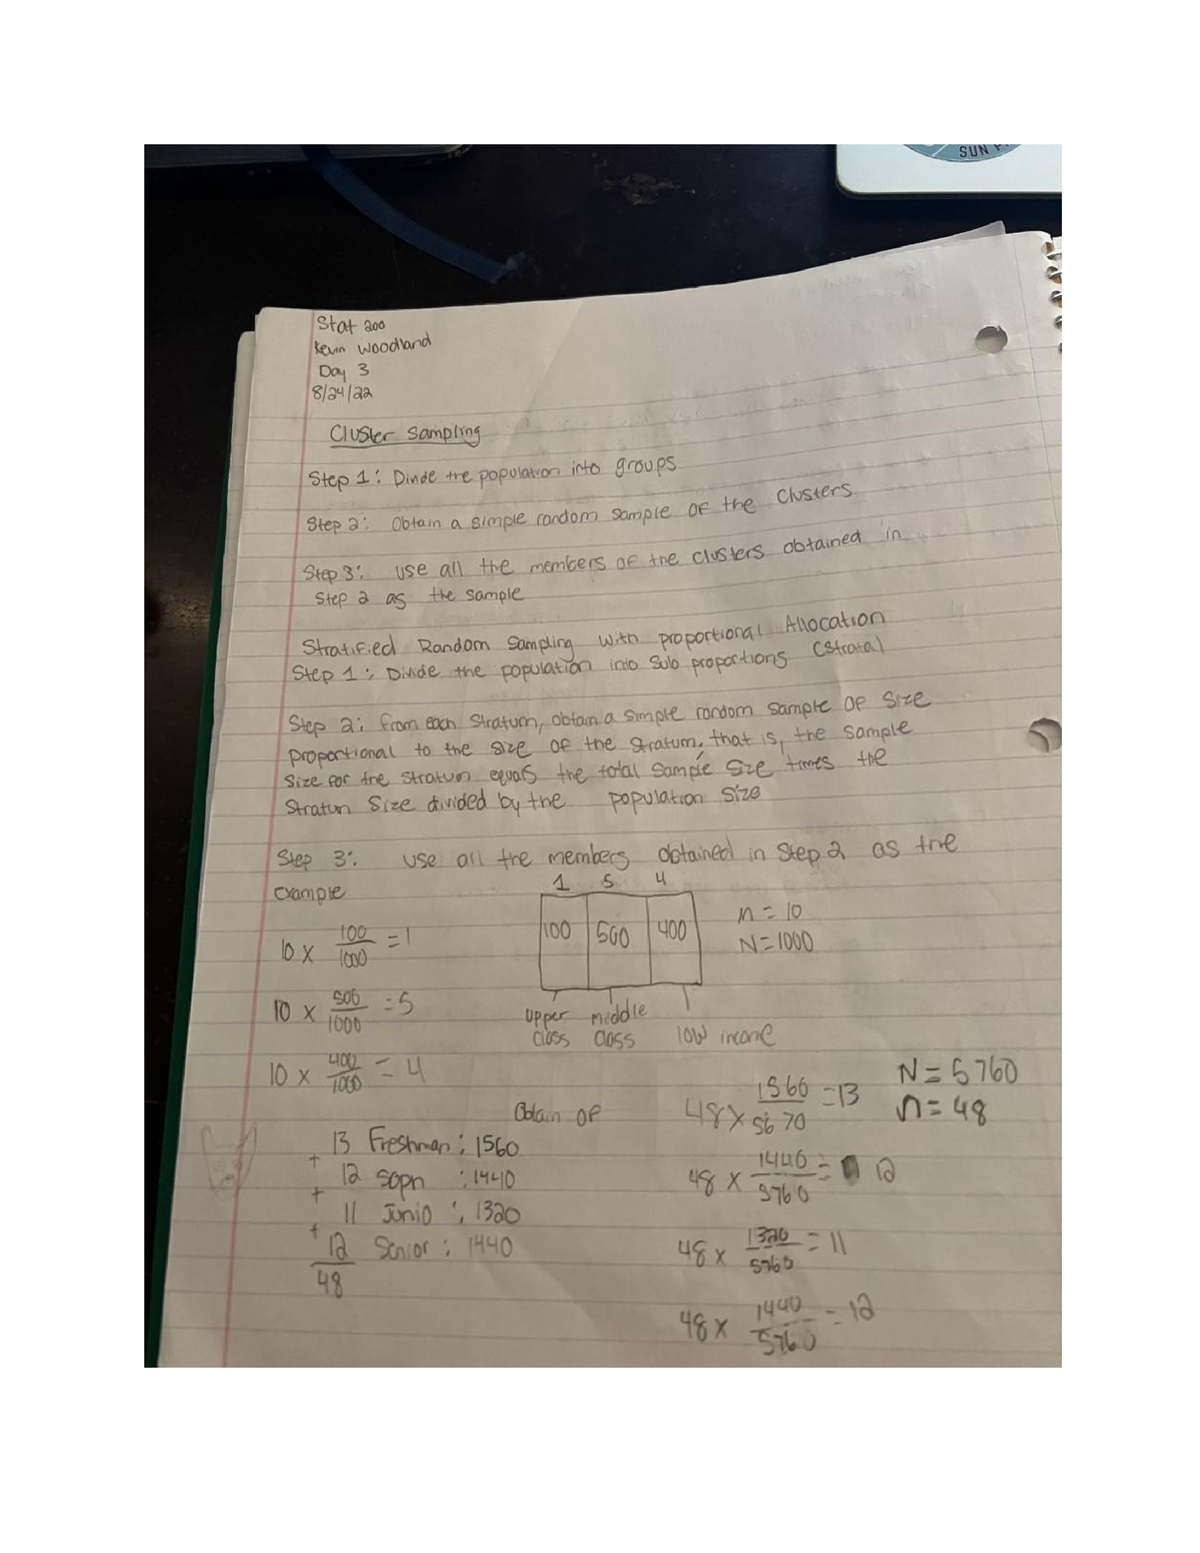 SUN
Stat 200
Kevin Woodland
Day 3
8/24/22
Cluster Sampling
Step 1: Divide the population into groups
Step 2: Obtain a simple random sample of the Clusters
Step 3: use all the members of the clusters obtained in
Step 2 as the sample
Stratified Random Sampling with proportional Allocation
Step 1: Divide the population into sub proportions (Strata)
Step 2: from each Stratum, obtain a simple random sample of size
proportional to the size of the stratum, that is, the sample
size for the stratum equals the total sample size times the
Stratum Size divided by the population size
Step 3: use all the members obtained in Step 2 as the
example
1 5 4
100 500 400
n = 10
N = 1000
10 x 100/1000 = 1
10 x 500/1000 = 5
10 x 400/1000 = 4
upper class
middle class
low income
Obtain of
13 Freshman: 1560
+ 12 soph : 1440
+ 11 Junio : 1320
+ 12 Senior : 1440
48
N = 5760
n = 48
48 x 1560/5670 = 13
48 x 1440/5760 = 12
48 x 1320/5760 = 11
48 x 1440/5760 = 12